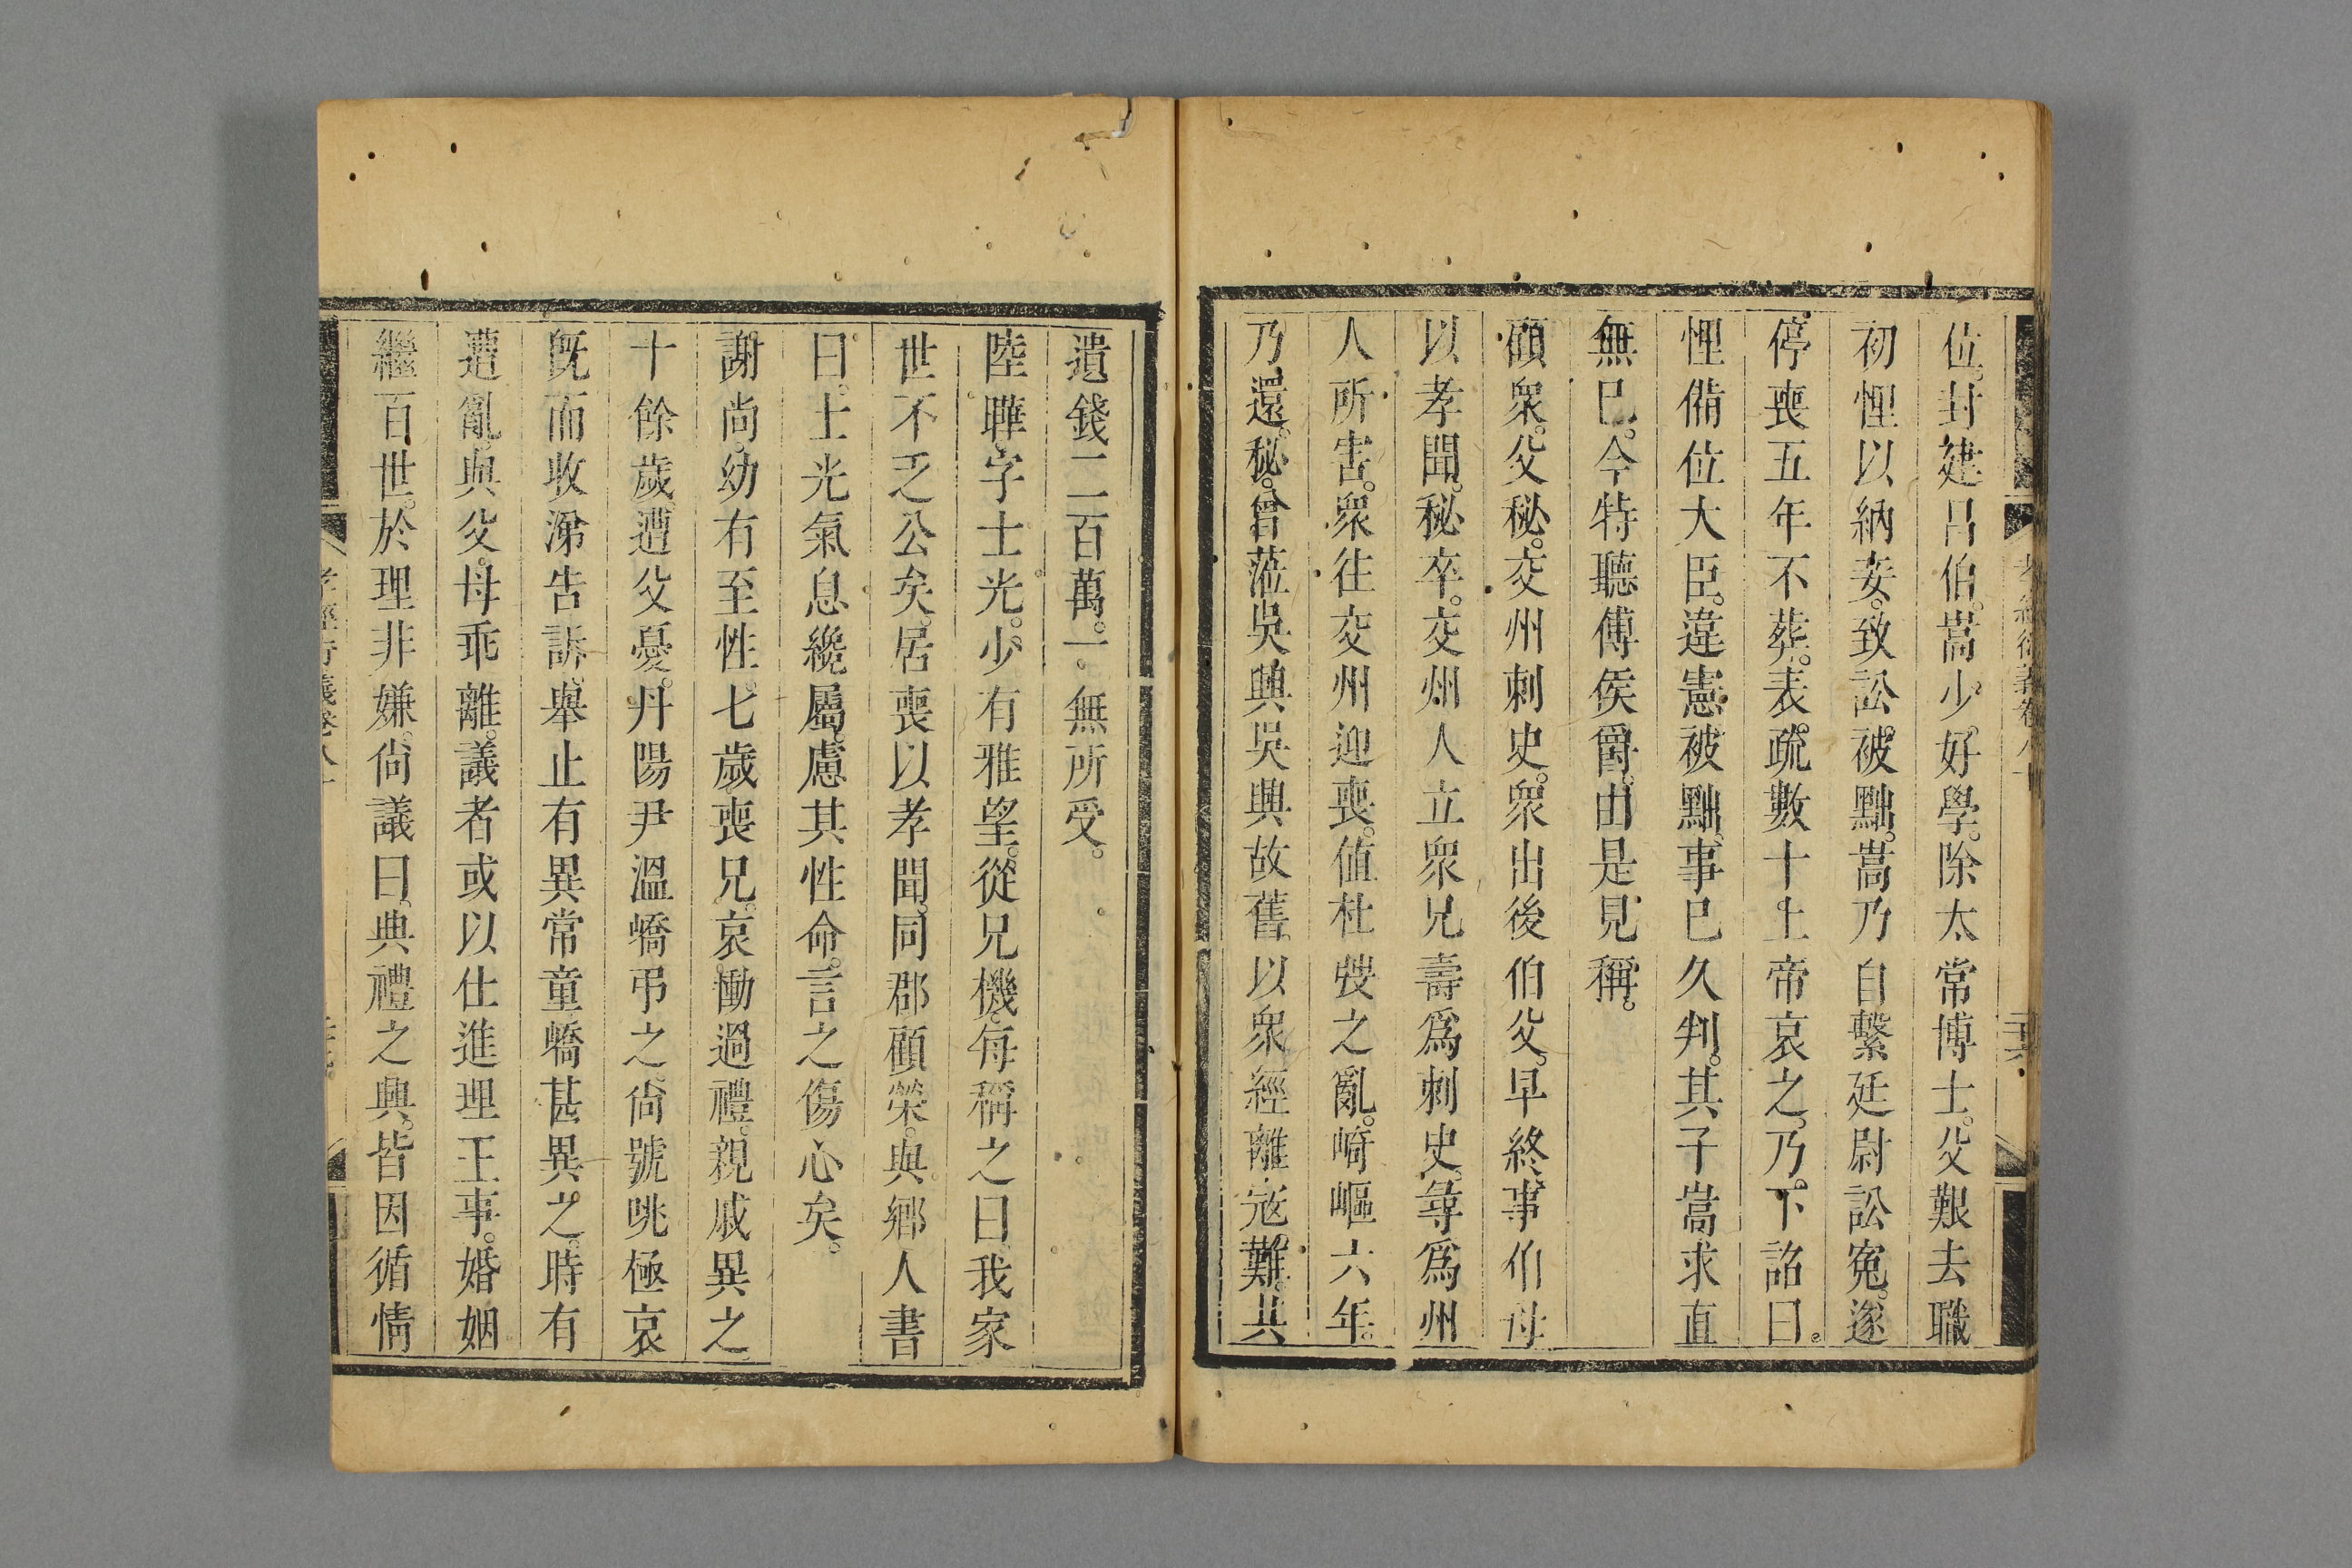 位。封建呂伯。嵩少。好學。除太常博士。父艱去職
初悝以納妾。致訟。被黜。嵩乃自繫廷尉訟寃。遂
停喪五年不葬。表疏數十上帝哀之。乃。下詔曰。
悝備位大臣。違憲被黜。事已久判。其子嵩求直
無已。今特聽傳侯爵。由是見稱。
顧衆。父秘。交州刺史。衆出後伯父。早終。事伯母
以孝聞。秘卒。交州人立衆兄壽爲刺史。尋爲州
人所害。衆往交州迎喪。值杜弢之亂。崎嶇六年。
乃還。秘。曾蒞吳興吳興故舊。以衆經離寇難。共
遺錢二百萬。一無所受。
陸曄。字士光。少有雅望。從兄機。每稱之曰。我家
世不乏公矣。居喪以孝聞。同郡顧榮。與鄉人書
曰。士光氣息纔屬。慮其性命。言之傷心矣。
謝尚。幼有至性。七歲喪兄。哀慟過禮。親戚異之。
十餘歲。遭父憂。丹陽尹溫嶠弔之。尙號咷極哀
旣而收涕告訴。舉止有異常童。嶠甚異之。時有
遭亂。與父。母乖離。議者或以仕進理王事。婚姻
繼百世。於理非嫌。尙議曰。典禮之興。皆因循情